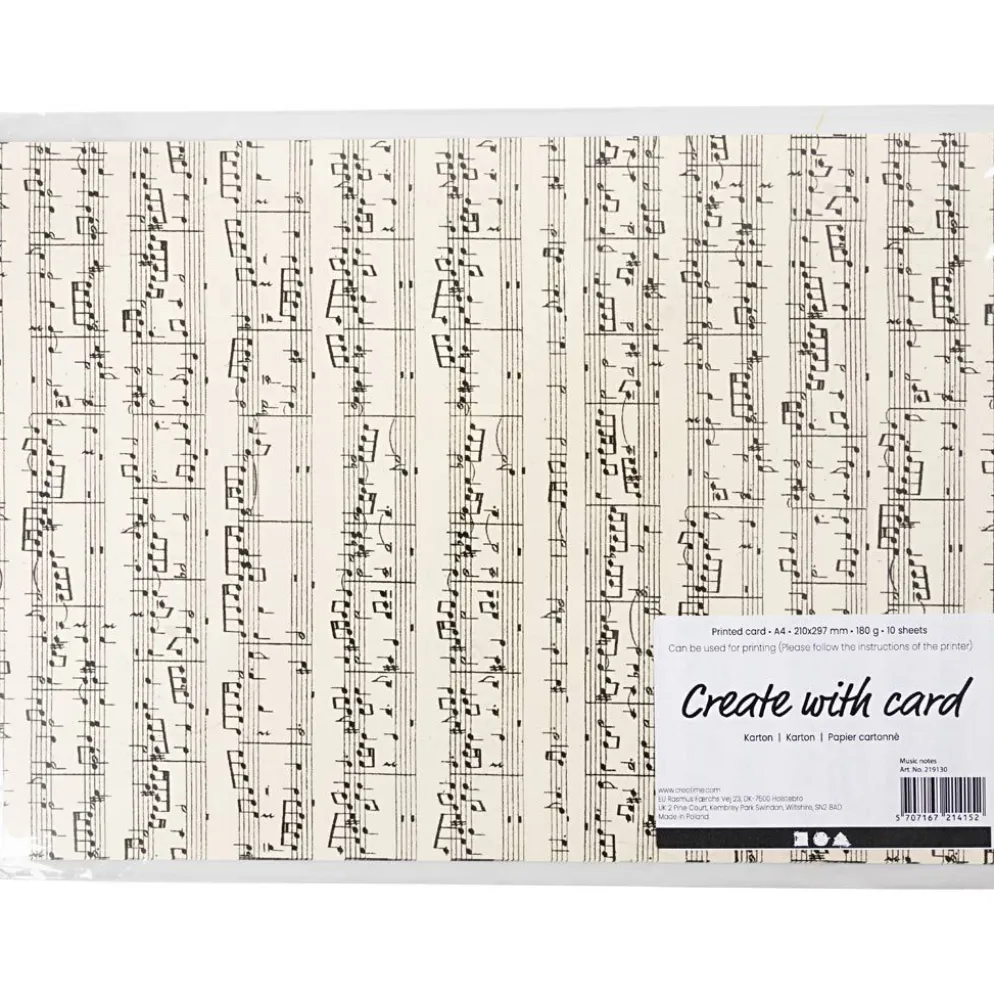 Printed card • A4 • 210x297 mm • 180 g • 10 sheets
Can be used for printing (Please follow the instructions of the printer)
Create with card
Karton | Karton | Papier cartonné
Music notes
Art. No. 219130
www.creativme.com
EU Rasmus Færchs Vej 23, DK-7500 Holstebro
UK 2 Pine Court, Kembrey Park Swindon, Wiltshire, SN2 8AD
Made in Poland
5 707167 214152